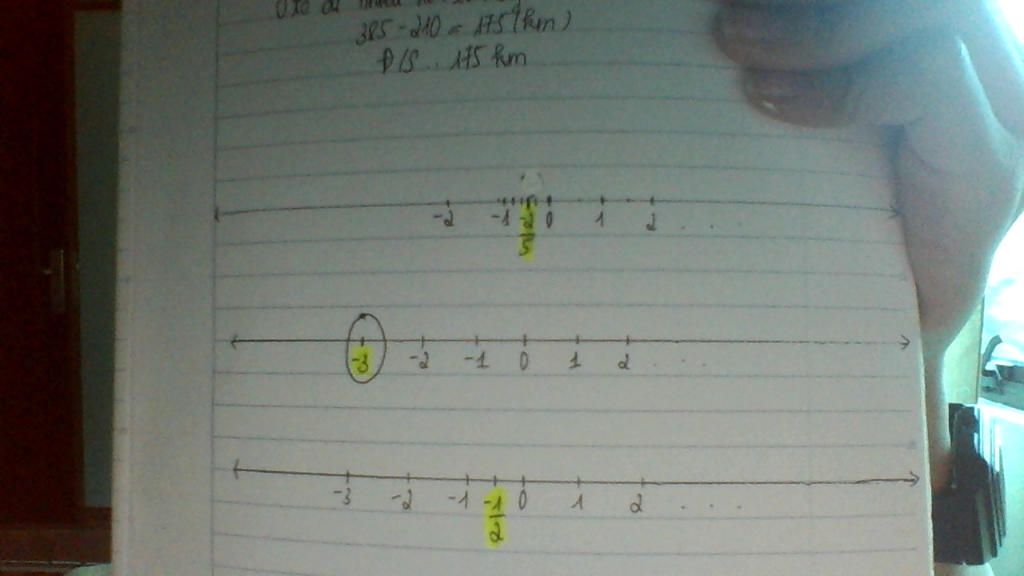 385 - 210 = 175 (km)
Đ/S .. 175 km
-2 -1 -2/5 0 1 2 . . .
-3 -2 -1 0 1 2 . . .
-3 -2 -1 -1/2 0 1 2 . . . .